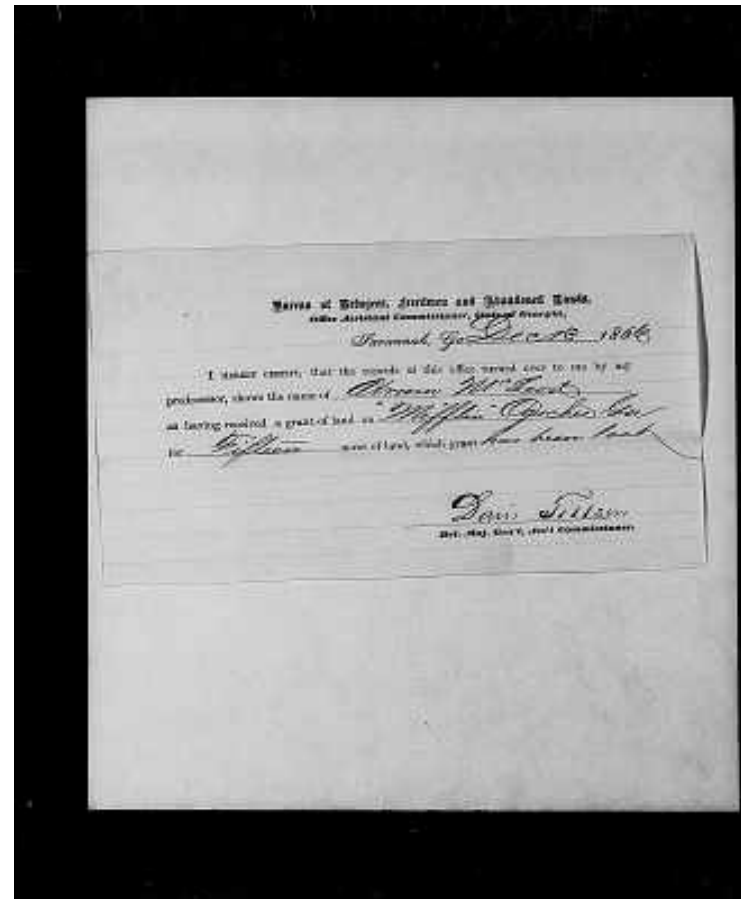 Bureau of Refugees, Freedmen and Abandoned Lands,
Office Assistant Commissioner, State of Georgia,
Savannah, Ga Dec 13 1866
I HEREBY CERTIFY, that the records of this office turned over to me by my
predecessor, shows the name of
as having received a grant of land on "Mifflin" Ogeechee Geo
for Fifteen acres of land, which grant has been lost
Davis Tillson
Bvt. Maj. Gen'l, Ass't Commissioner.